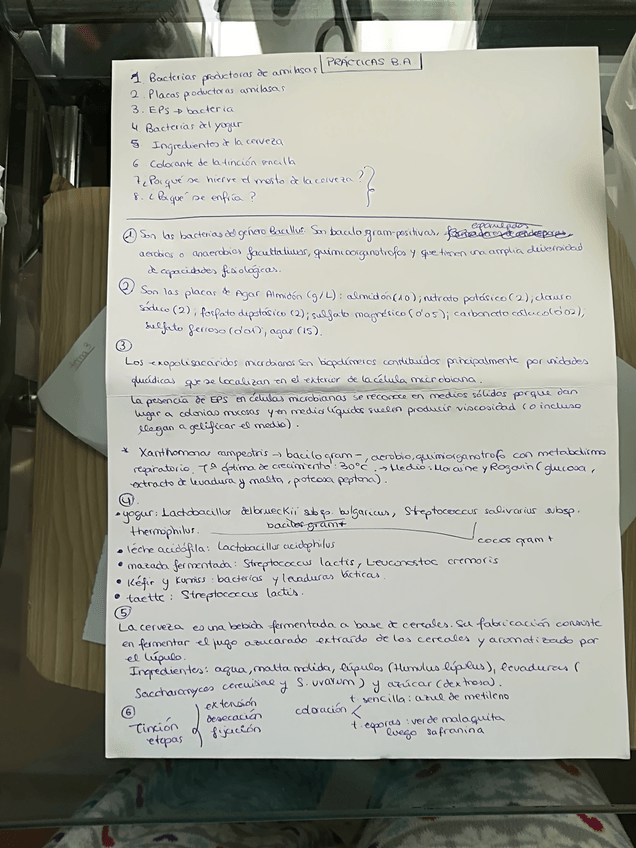 PRÁCTICAS B.A
1 Bacterias productoras de amilasas
2. Placas productoras amilasas
3. EPS → bacteria
4. Bacterias del yogur
5 Ingredientes de la cerveza
6 Colorante de la tinción sencilla
7 ¿Por qué se hierve el mosto de la cerveza?
8. ¿Por qué se enfría?
① Son las bacterias del género Bacillus. Son bacilo gram-positivas, esporulados
aerobios o anaerobios facultativos, quimiorganotrofos y que tienen una amplia diversidad
de capacidades fisiológicas.
② Son las placas de Agar Almidón (g/L): almidón (10); nitrato potásico (2), cloruro
sódico (2), fosfato dipotásico (2); sulfato magnésico (0'05); carbonato cálcico (0'02),
sulfato ferroso (0'01), agar (15).
③
Los exopolisacáridos microbianos son biopolímeros constituidos principalmente por unidades
glucídicas que se localizan en el exterior de la célula microbiana.
La presencia de EPS en células microbianas se reconoce en medios sólidos porque dan
lugar a colonias mucosas y en medio líquidos suelen producir viscosidad (o incluso
llegan a gelificar el medio).
* Xanthomonas campestris → bacilo gram -, aerobio, quimiorganotrofo con metabolismo
respiratorio. Tª óptima de crecimiento: 30°C. → Medio: Moraine y Rogovin (glucosa,
extracto de levadura y malta, proteosa peptona).
④
• yogur: Lactobacillus delbrueckii subsp. bulgaricus, Streptococcus salivarius subsp.
thermophilus. bacilos gram + cocos gram +
• leche acidófila: Lactobacillus acidophilus
• mazada fermentada: Streptococcus lactis, Leuconostoc cremoris
• Kéfir y Kumiss: bacterias y levaduras lácticas.
• taette: Streptococcus lactis.
⑤
La cerveza es una bebida fermentada a base de cereales. Su fabricación consiste
en fermentar el jugo azucarado extraído de los cereales y aromatizado por
el lúpulo.
Ingredientes: agua, malta molida, lúpulos (Humulus lúplus), levaduras (
Saccharomyces cerevisiae y S. uvarum) y azúcar (dextrosa).
⑥
Tinción etapas
extensión
desecación
fijación
coloración
t. sencilla: azul de metileno
t. esporas: verde malaquita
luego safranina